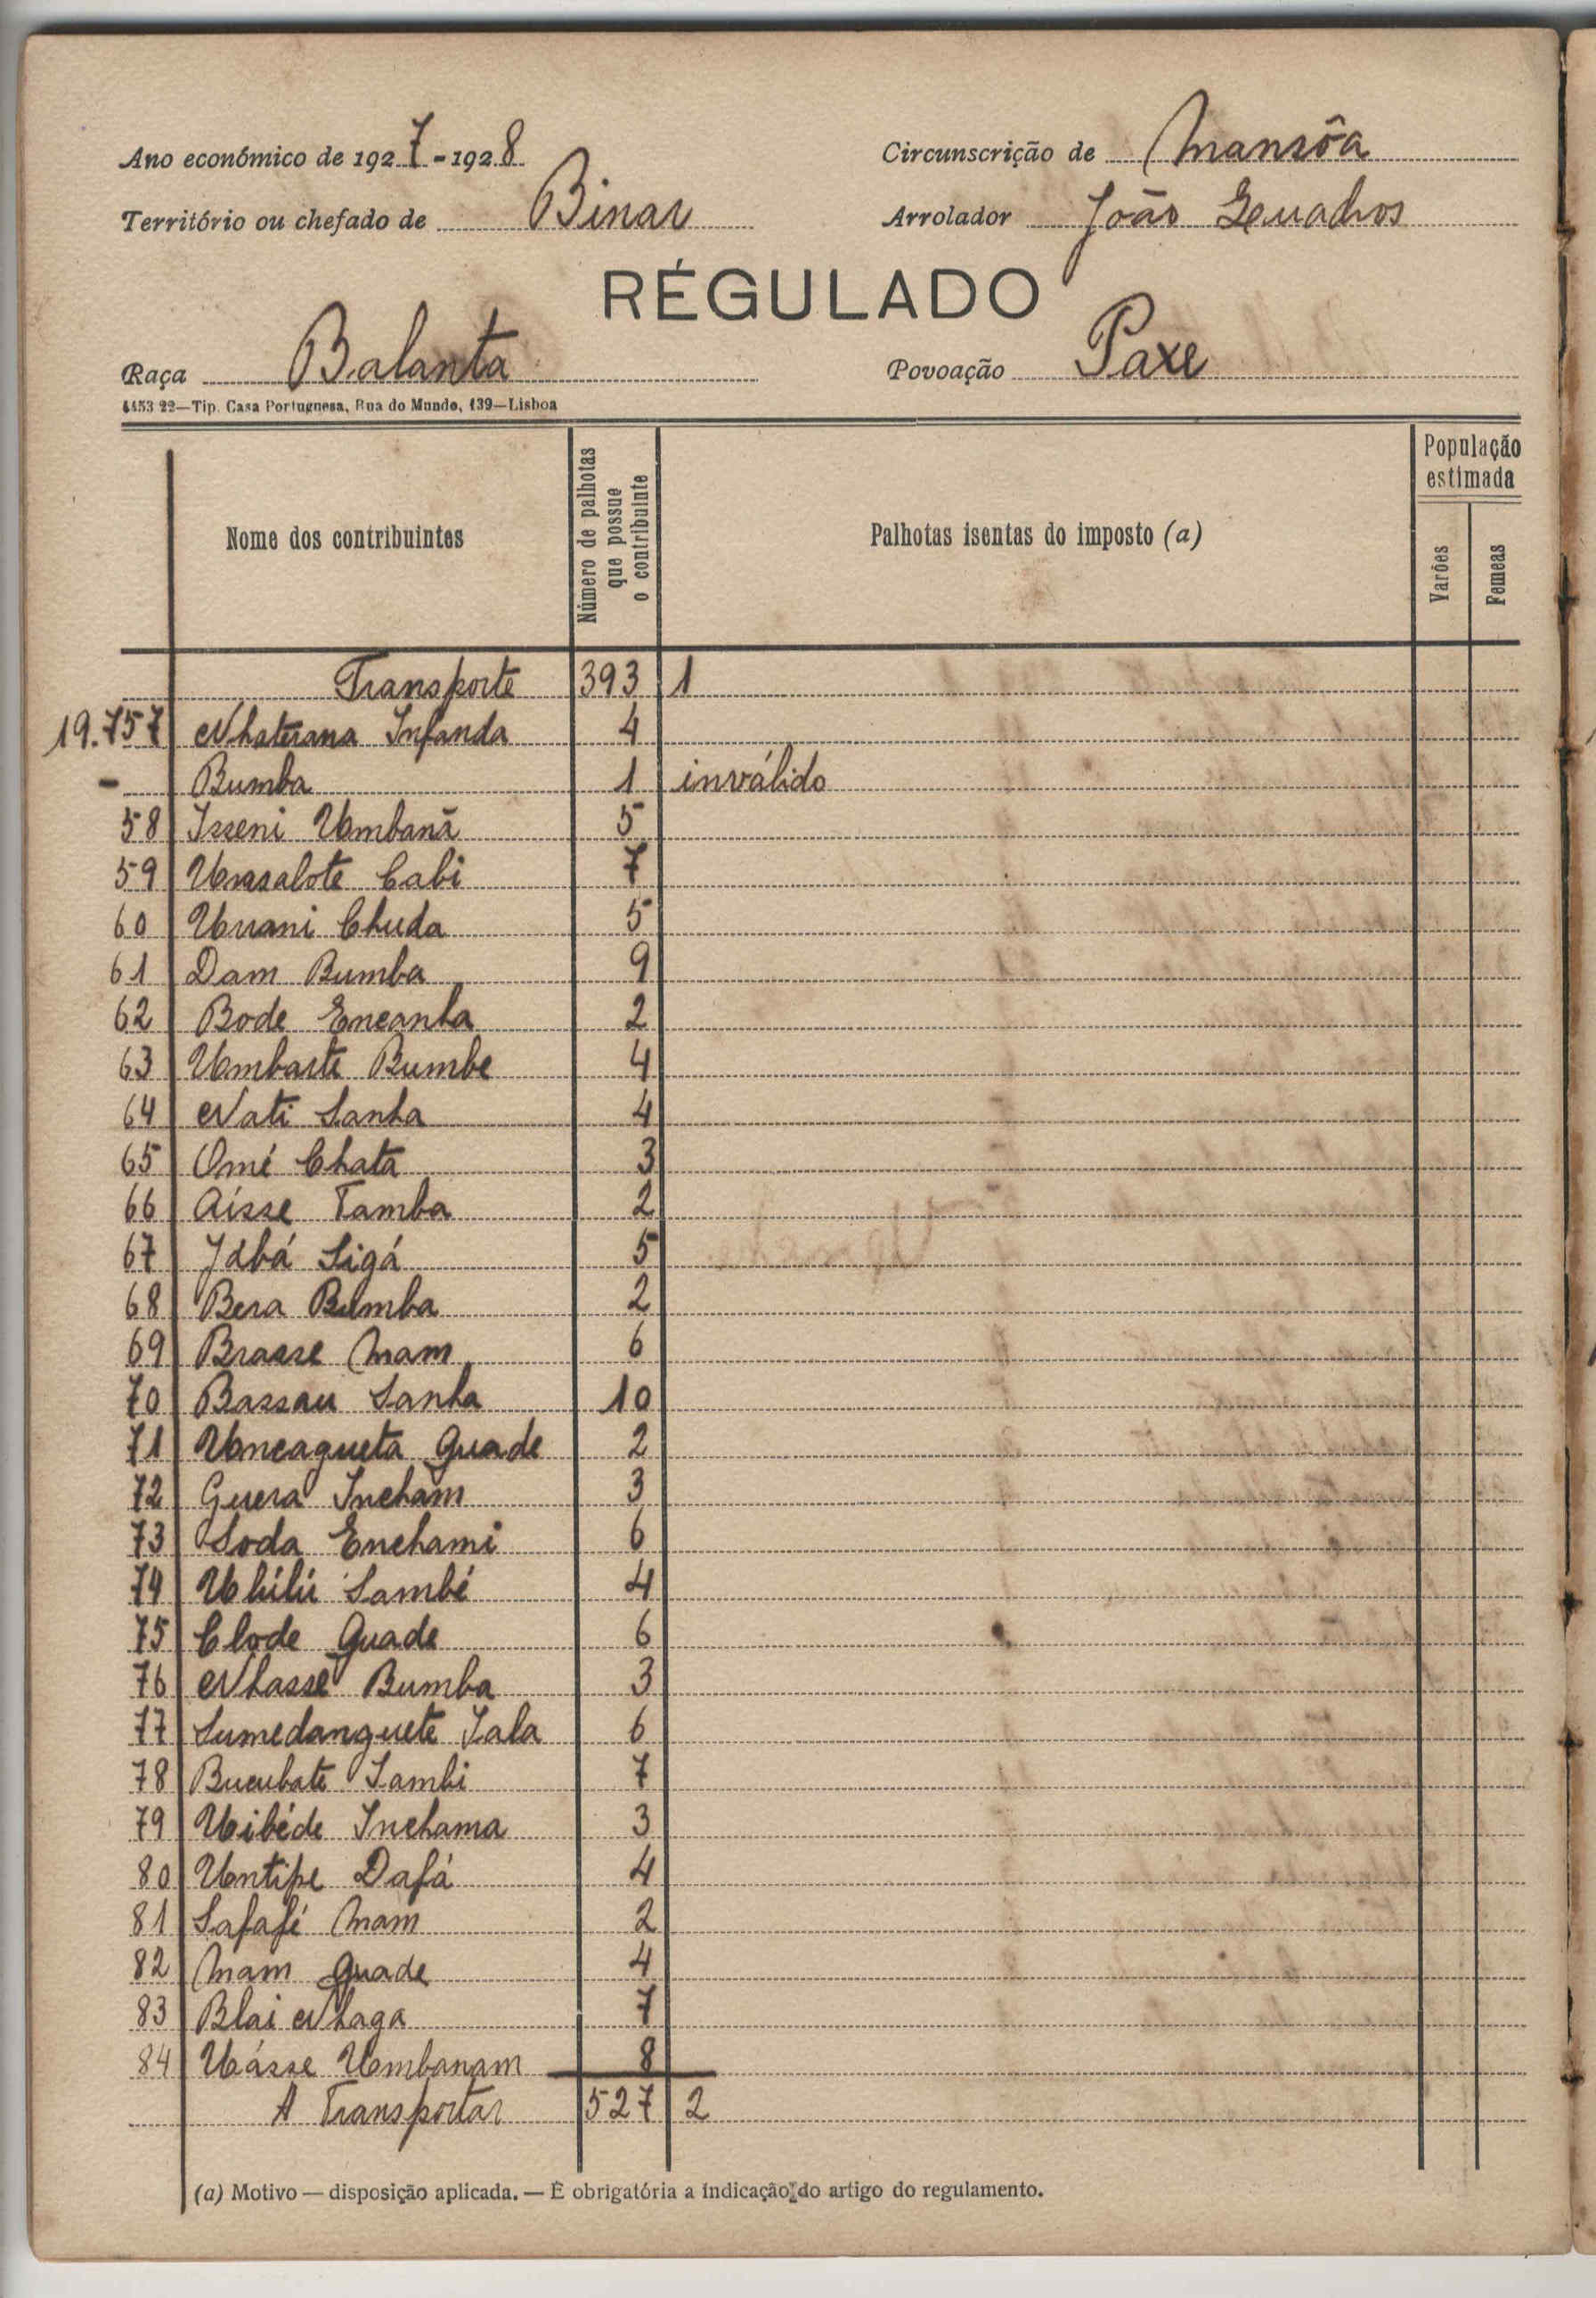 Ano económico de 1927-1928 Circunscrição de Mansôa
Território ou chefado de Binar Arrolador João
RÉGULADO
Raça Balanta Povoação Paxe
4453 22—Tip. Casa Portuguesa, Rua do Mundo, 139—Lisboa
Nome dos contribuintes
Número de palhotas que possue o contribuinte
Palhotas isentas do imposto (a)
População estimada
Varões
Femeas
Transporte 393 1
19.757 Nhaterana Infanda 4
- Bumba 1 inválido
58 Isseni Umbanã 5
59 Umsalote Cabi 7
60 Unani Chuda 5
61 Dam Bumba 9
62 Bode Encanha 2
63 Umbarte Bumbe 4
64 Nati Sanha 4
65 Omé Chata 3
66 Aisse Tamba 2
67 Idbá Sigá 5
68 Bera Bumba 2
69 Brasse Mam 6
70 Bassau Sanha 10
71 Uncagueta Guade 2
72 Guera Incham 3
73 Soda Enchami 6
74 Uhílú Sambé 4
75 Clode Guade 6
76 Nhasse Bumba 3
77 Sumedanguete Iala 6
78 Bucubate Sambi 7
79 Uibéde Inchama 3
80 Untipe Dafá 4
81 Safafé Mam 2
82 Mam Guade 4
83 Blai Nhaga 7
84 Uásse Umbanam 8
A Transportar 527 2
(a) Motivo — disposição aplicada. — É obrigatória a indicação do artigo do regulamento.